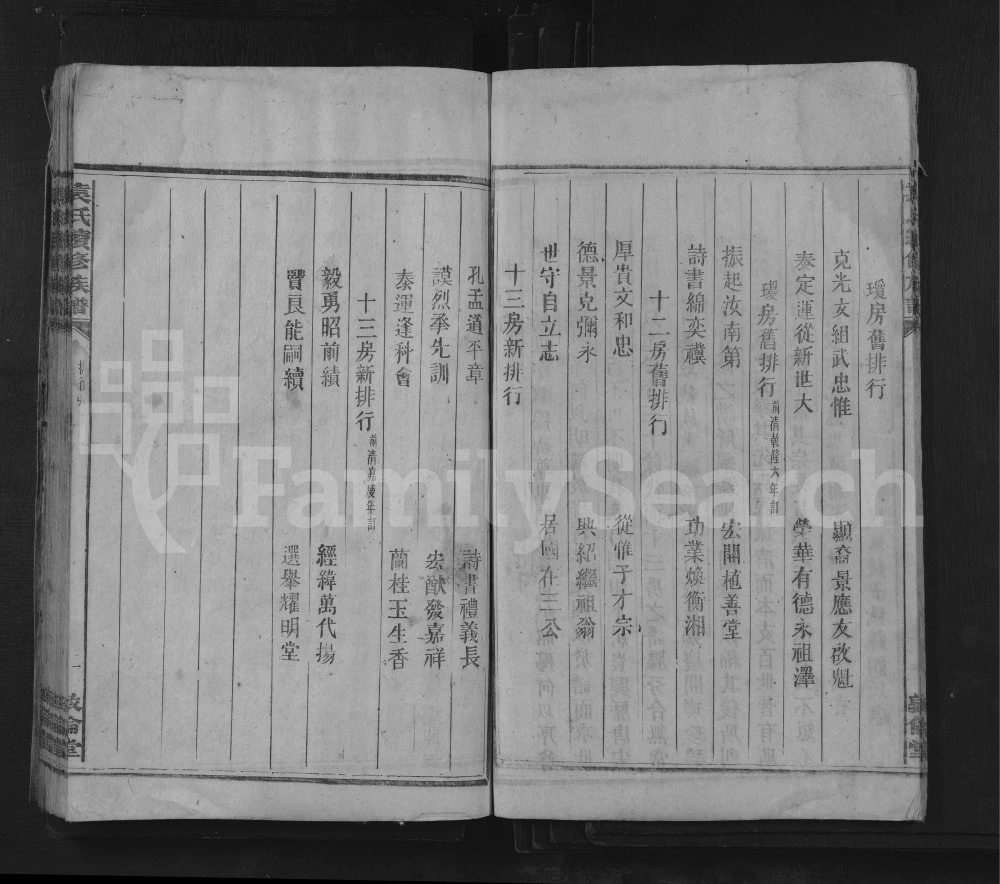 瓊房舊排行
克光友組武忠惟　顯裔景應友啟魁
泰定運從新世大　榮華有德永祖澤
璦房舊排行 前清乾隆六年訂
振起汝南第　宏開植善堂
詩書綿奕襈　功業煥衡湘
十二房舊排行
厚貴文和忠　從惟子才宗
德景克彌永　興紹繼祖翁
世守自立志　居國在三公
十三房新排行
孔孟道平章　詩書禮義長
謨烈承先訓　宏猷發嘉祥
泰運逢科會　蘭桂玉生香
十三房新排行 前清嘉慶年訂
毅勇昭前績　經緯萬代揚
賢良能嗣續　選舉耀明堂
袁氏續修族譜
一
敦倫堂
FamilySearch